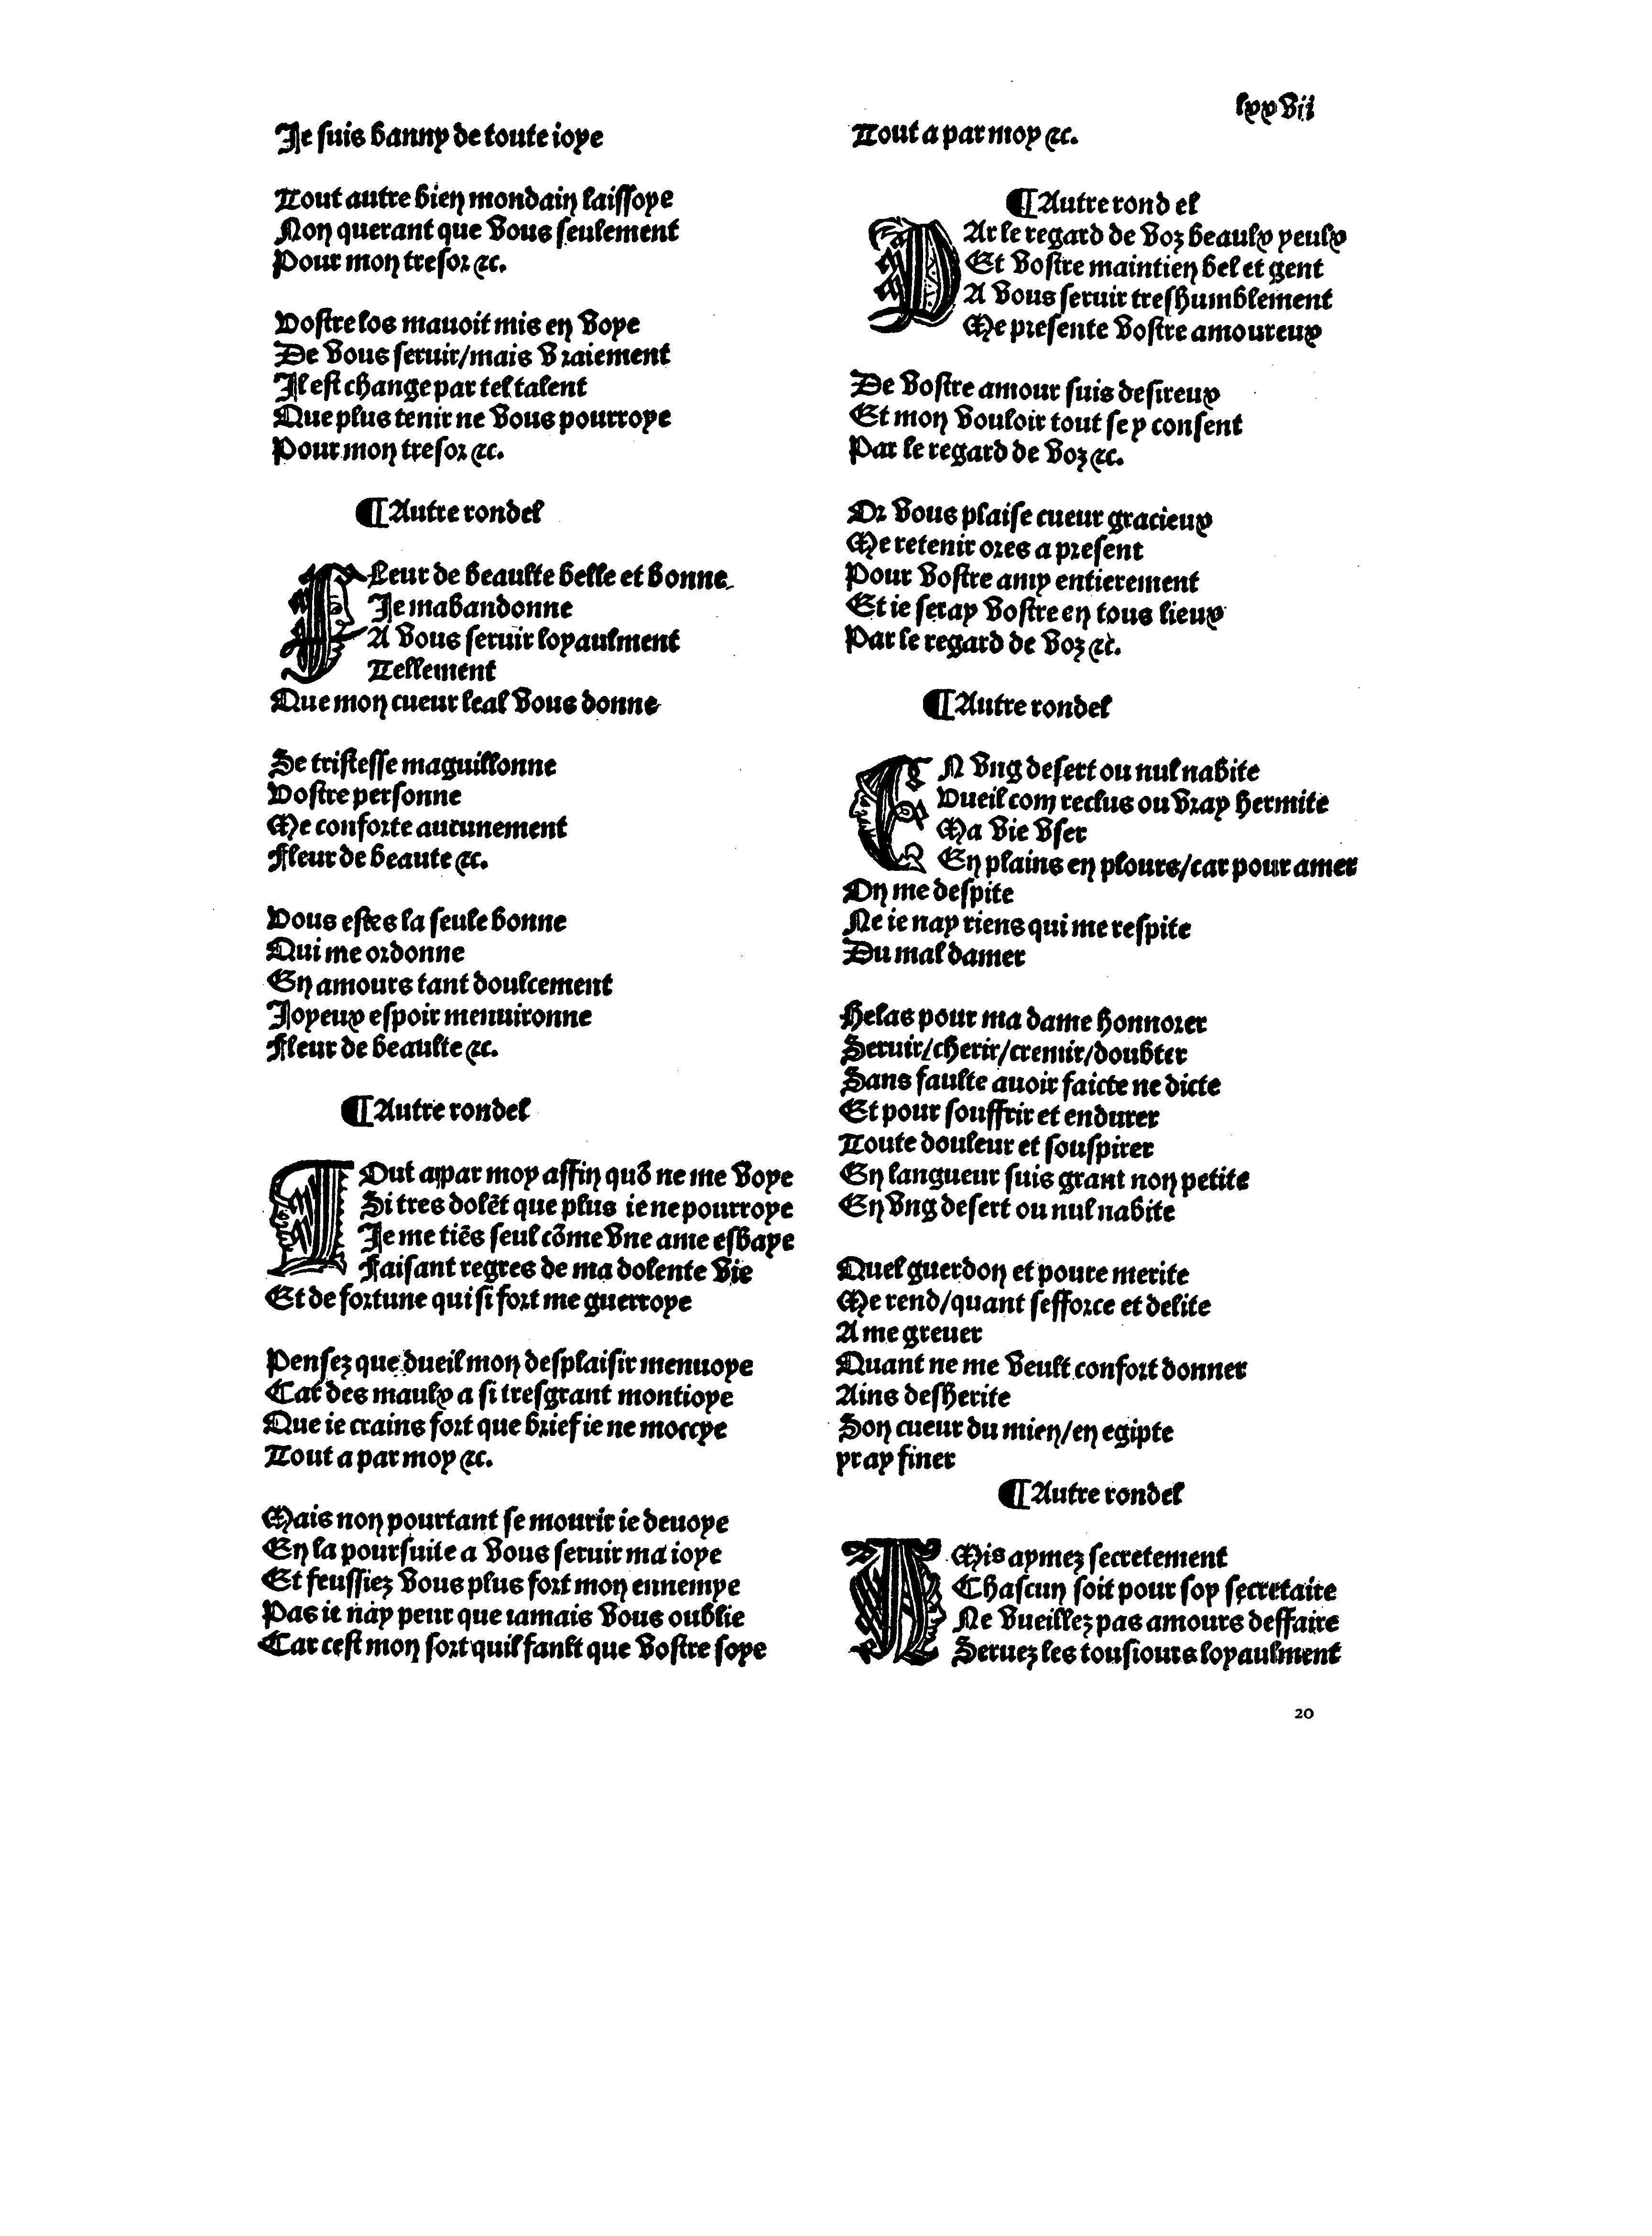 lxxvii
Je suis banny de toute ioye
Tout autre bien mondain laissoye
Non querant que vous seulement
Pour mon tresor &c.
Vostre los mauoit mis en voye
De vous seruir/mais vraiement
Il est change par tel talent
Que plus tenir ne vous pourroye
Pour mon tresor &c.
¶Autre rondel
FLeur de beaulte belle et bonne
Je mabandonne
A vous seruir loyaulment
Tellement
Que mon cueur leal vous donne
Se tristesse maguillonne
Vostre personne
Me conforte aucunement
Fleur de beaute &c.
Vous estes la seule bonne
Qui me ordonne
En amours tant doulcement
Joyeux espoir menuironne
Fleur de beaulte &c.
¶Autre rondel
TOut appar moy affin quõ ne me voye
Si tres dolẽt que plus ie ne pourroye
Je me tiẽs seul cõme vne ame esbaye
Faisant regres de ma dolente vie
Et de fortune qui si fort me guerroye
Pensez que dueil mon desplaisir menuoye
Car des maulx a si tresgrant montioye
Que ie crains fort que brief ie ne moccye
Tout a par moy &c.
Mais non pourtant se mourir ie deuoye
En la poursuite a vous seruir ma ioye
Et feussiez vous plus fort mon ennemye
Pas ie nay peur que iamais vous oublie
Car cest mon sort quil fanlt que vostre soye
Tout a par moy &c.
¶Autre rond el
PAr le regard de voz beaulx yeulx
Et vostre maintien bel et gent
A vous seruir treshumblement
Me presente vostre amoureux
De vostre amour suis desireux
Et mon vouloir tout se y consent
Par le regard de voz &c.
Or vous plaise cueur gracieux
Me retenir ores a present
Pour vostre amy entierement
Et ie seray vostre en tous lieux
Par le regard de voz &c.
¶Autre rondel
EN vng desert ou nul nabite
Vueil com reclus ou vray hermite
Ma vie vser
En plains en plours/car pour amer
On me despite
Ne ie nay riens qui me respite
Du mal damer
Helas pour ma dame honnorer
Seruir/cherir/cremir/doubter
Sans faulte auoir faicte ne dicte
Et pour souffrir et endurer
Toute douleur et souspirer
En langueur suis grant non petite
En vng desert ou nul nabite
Quel guerdon et poure merite
Me rend/quant sefforce et delite
A me greuer
Quant ne me veult confort donner
Ains desherite
Son cueur du mien/en egipte
yray finer
¶Autre rondel
AMis aymez secretement
Chascun soit pour soy secretaire
Ne vueillez pas amours deffaire
Seruez les tousiours loyaulment
20